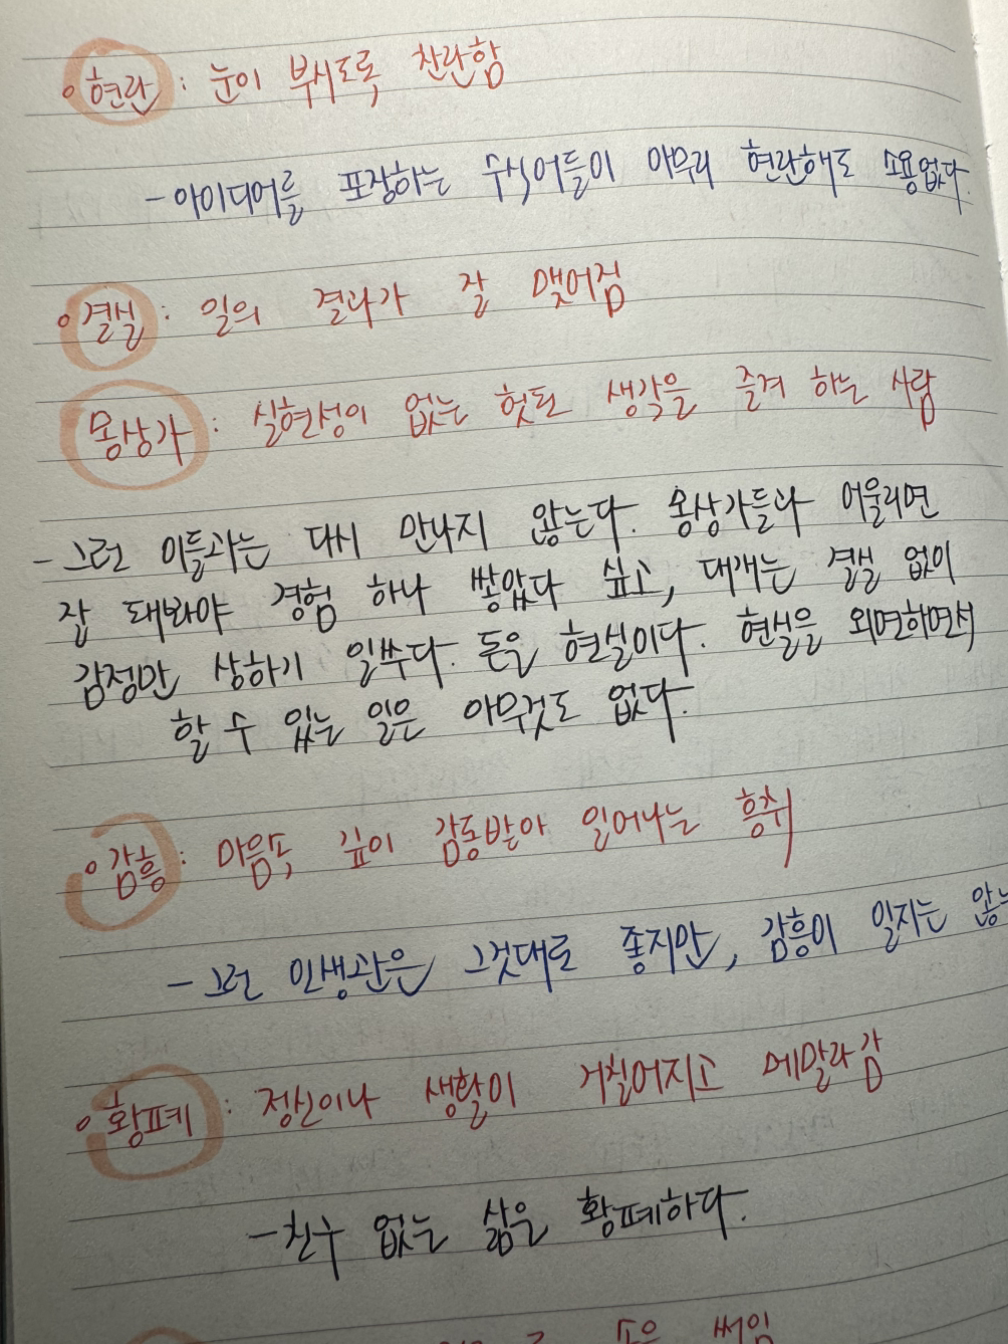 ◦현란 : 눈이 부시도록 찬란함
-아이디어를 포장하는 수식어들이 아무리 현란해도 소용없다.
◦결실 : 일의 결과가 잘 맺어짐
몽상가 : 실현성이 없는 헛된 생각을 즐겨 하는 사람
-그런 이들과는 다시 만나지 않는다. 몽상가들과 어울리면
잘 돼봐야 경험 하나 쌓았다 싶고, 대개는 결실 없이
감정만 상하기 일쑤다. 돈은 현실이다. 현실을 외면하면서
할 수 있는 일은 아무것도 없다.
◦감흥 : 마음속 깊이 감동받아 일어나는 흥취
-그런 인생관은 그것대로 좋지만, 감흥이 일지는 않는
◦황폐 : 정신이나 생활이 거칠어지고 메말라감
-친구 없는 삶은 황폐하다.